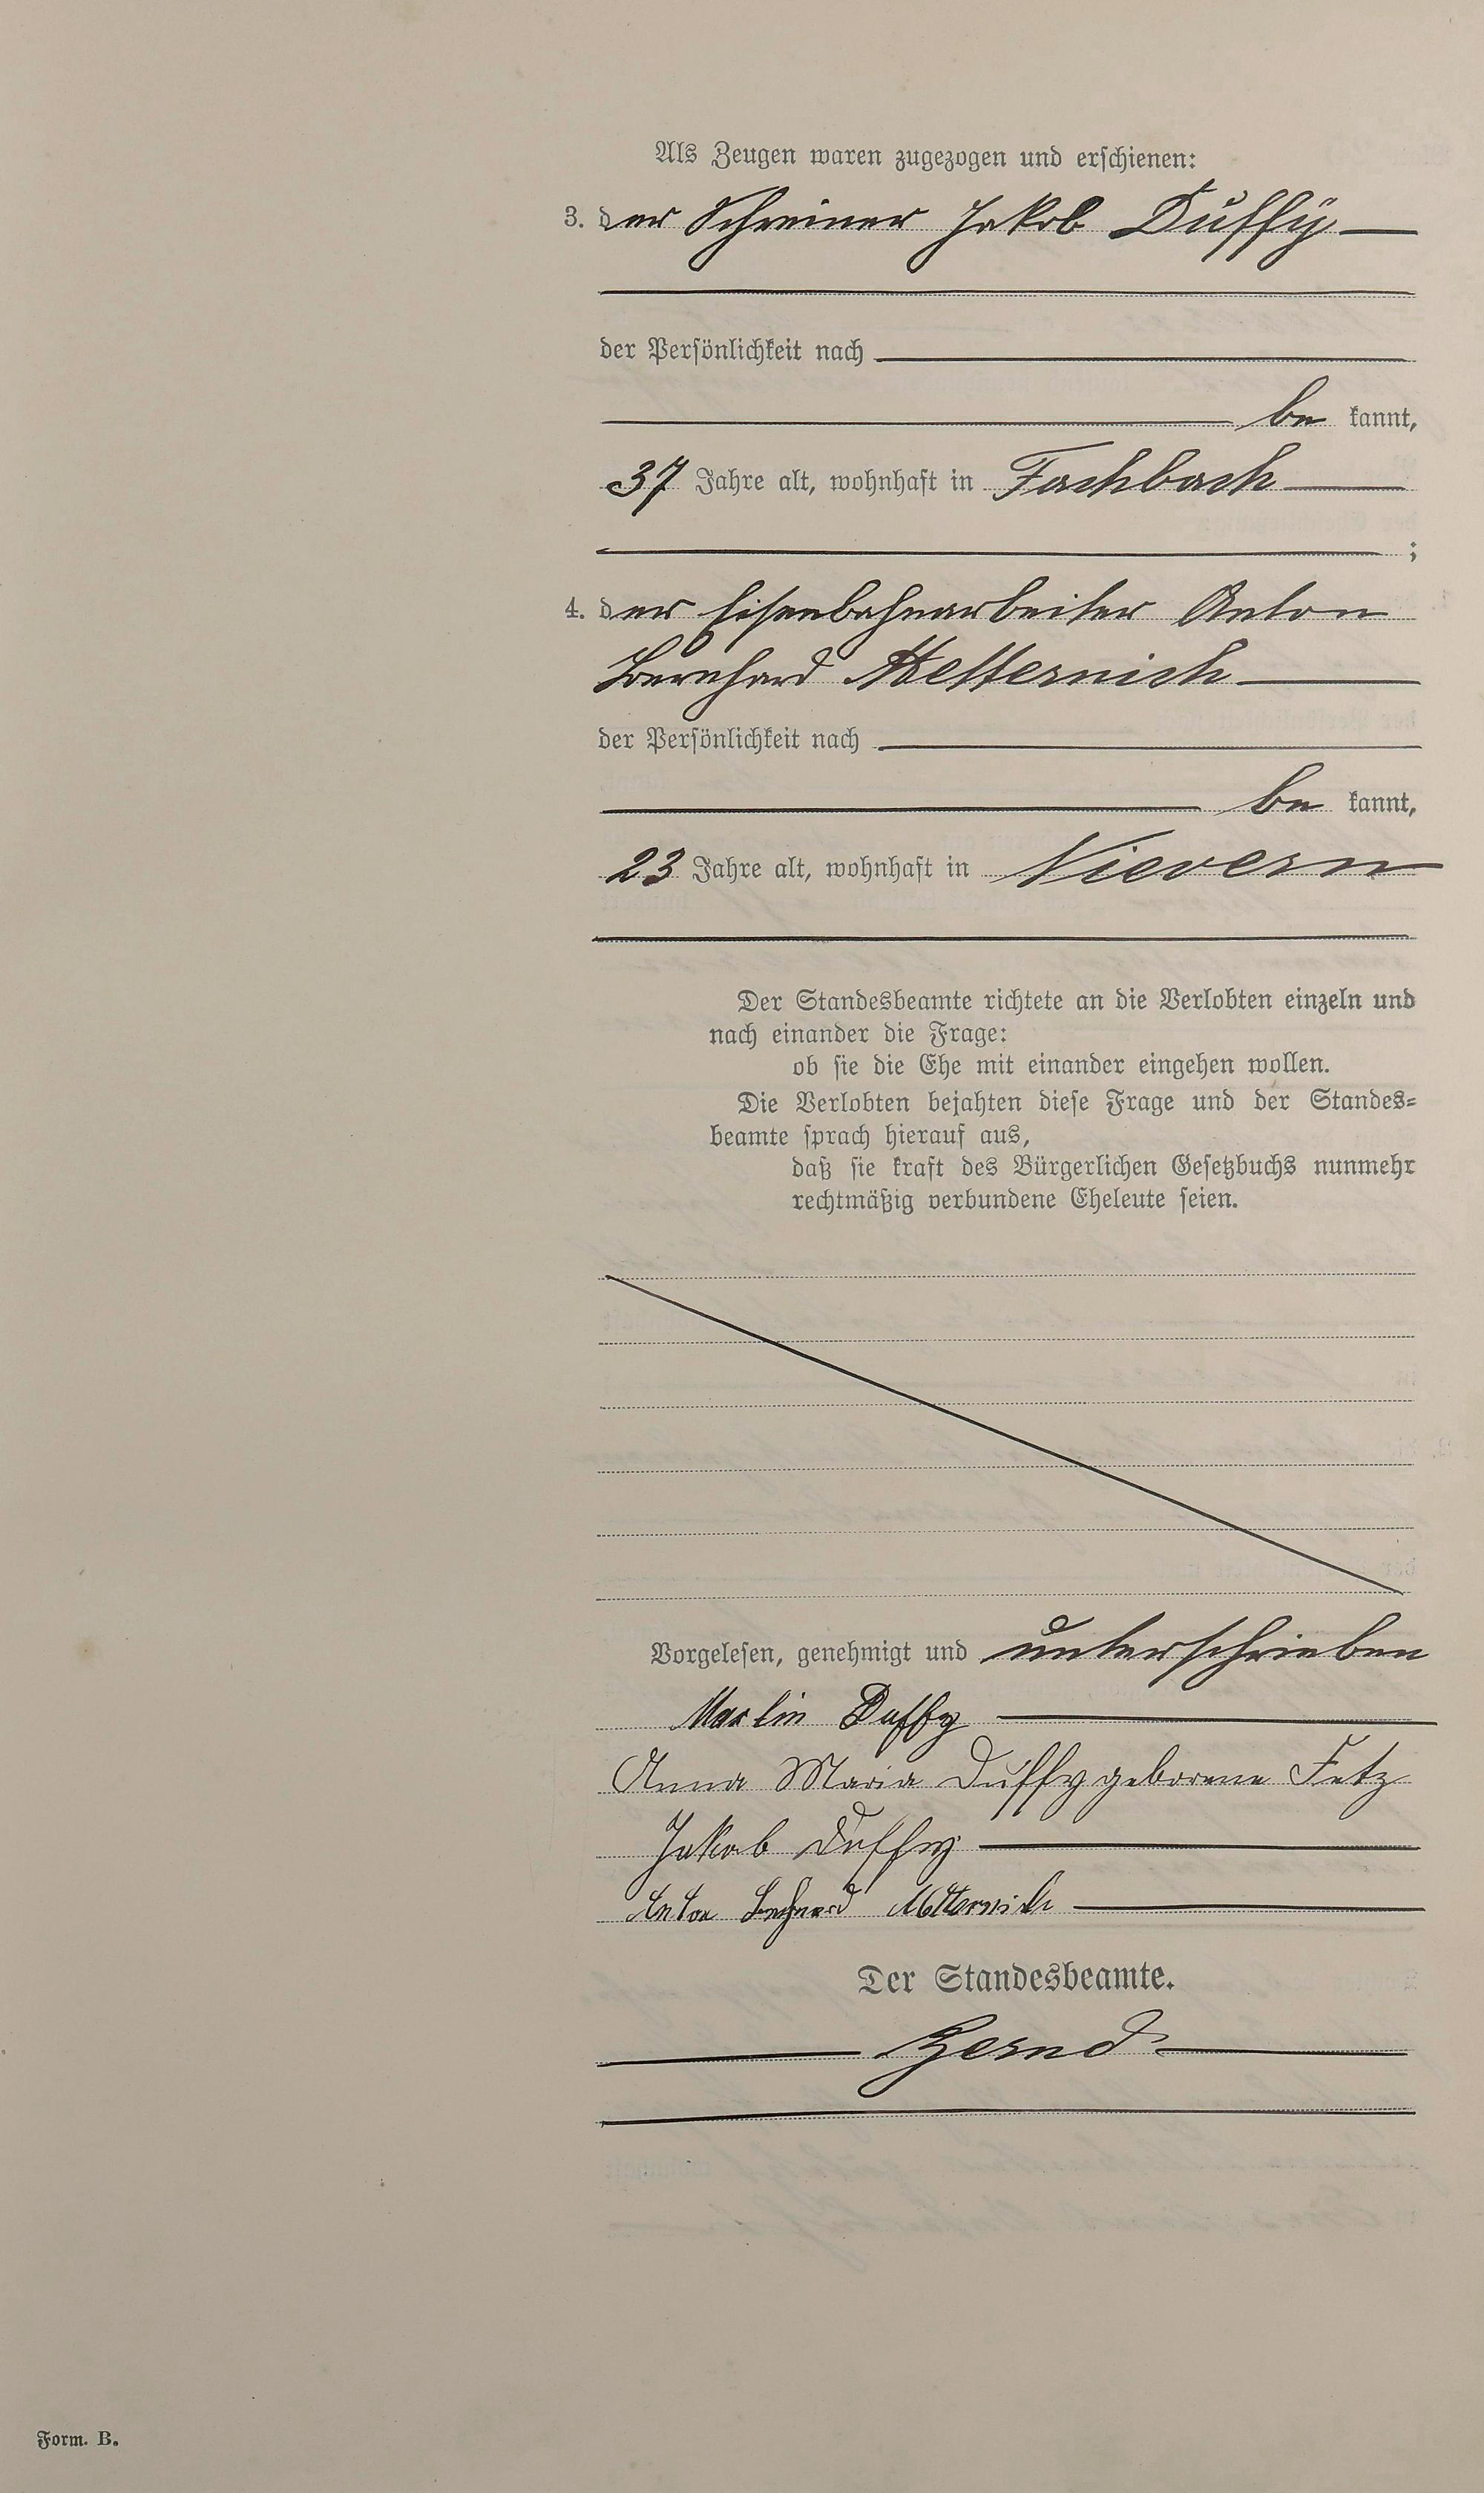 Als Zeugen waren zugezogen und erschienen:
3. der Schreiner Jakob Duffÿ
der Persönlichkeit nach
be kannt,
37 Jahre alt, wohnhaft in Fachbach
;
4. der Eisenbahnarbeiter Anton
Bernhard Metternich
der Persönlichkeit nach
be kannt,
23 Jahre alt, wohnhaft in Nievern
Der Standesbeamte richtete an die Verlobten einzeln und
nach einander die Frage:
ob sie die Ehe mit einander eingehen wollen.
Die Verlobten bejahten diese Frage und der Standes=
beamte sprach hierauf aus,
daß sie kraft des Bürgerlichen Gesetzbuchs nunmehr
rechtmäßig verbundene Eheleute seien.
Vorgelesen, genehmigt und unterschrieben
Martin Duffy
Anna Maria Duffy geborene Fetz
Jakob Duffy
Anton Bernhard Metternich
Der Standesbeamte.
Form. B.